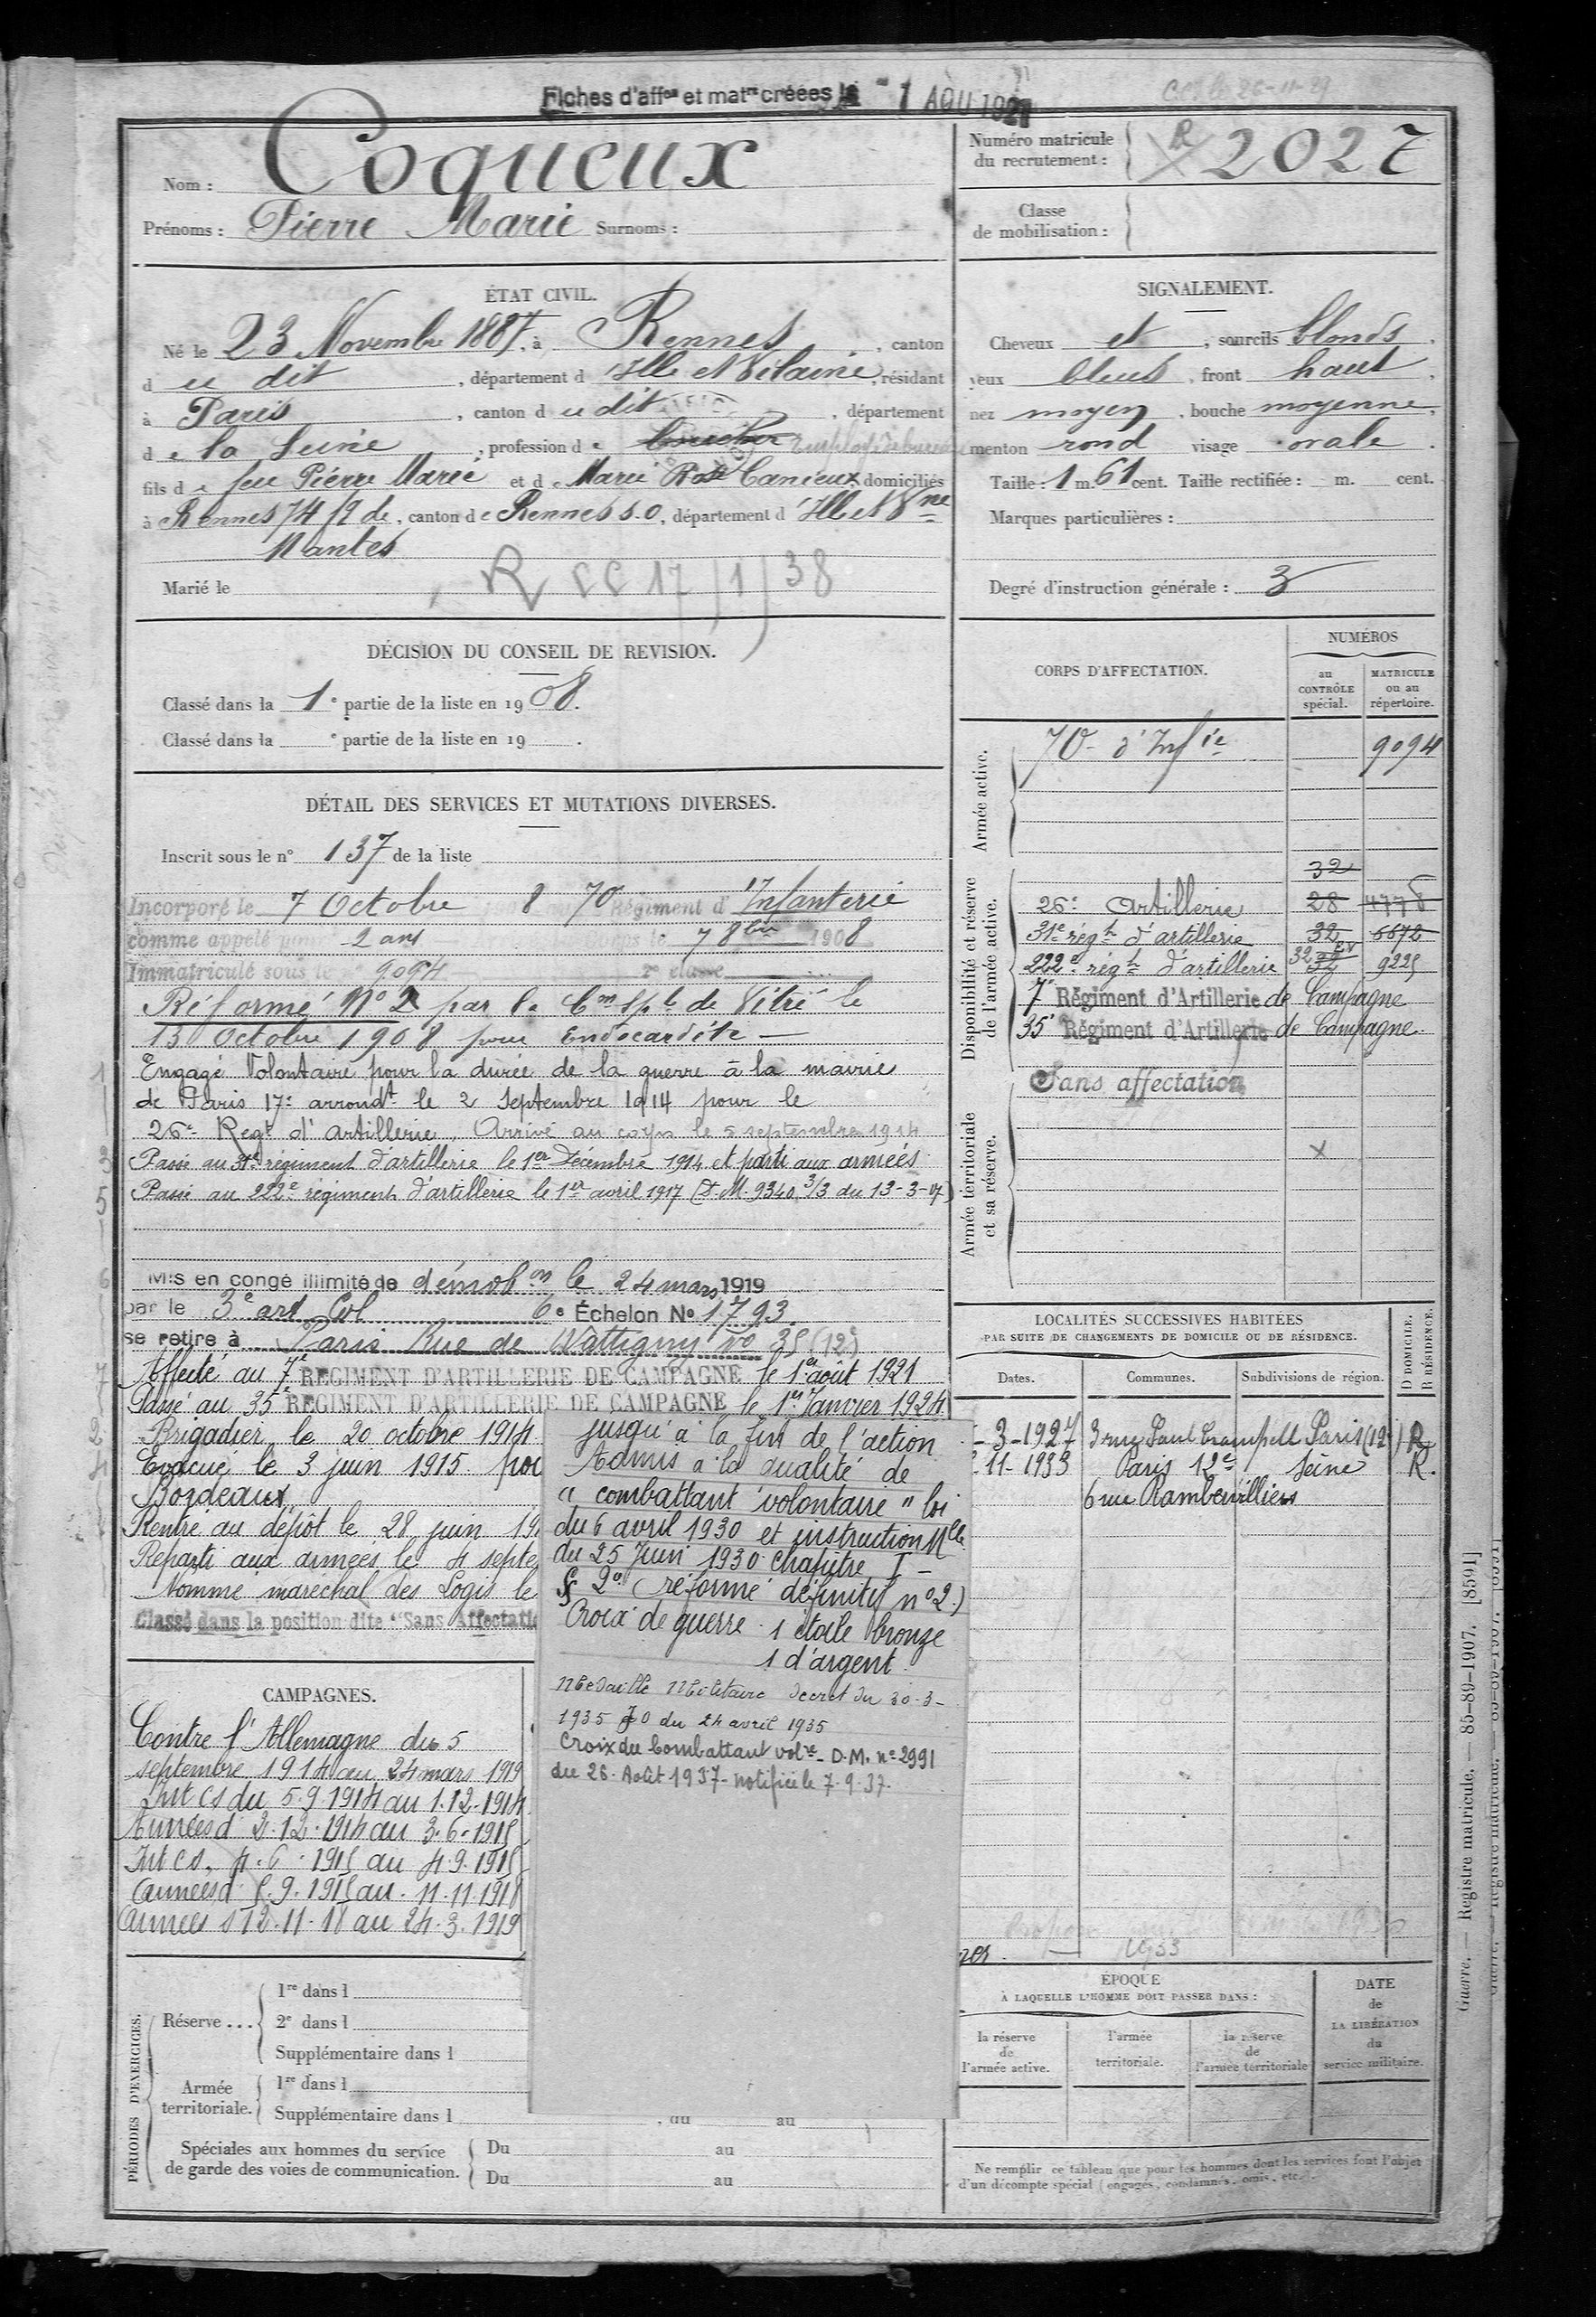 Fiches d'affon et matre créées le 1 AOU 1921
Nom : Coqueux
Prénoms : Pierre Marie Surnoms :
Numéro matricule du recrutement : R 2027
Classe de mobilisation :
ÉTAT CIVIL.
Né le 23 Novembre 1887, à Rennes, canton
d u dit, département d Ille et Vilaine, résidant
à Paris, canton d u dit, département
d e la Seine, profession d e
fils d e feu Pierre Marie et d e Marie Rose Canieux, domiciliés
à Rennes 74 R de, canton d e Rennes S.O, département d Ille et Vne
Nantes
Marié le
R CC 17/1/38
SIGNALEMENT.
Cheveux et, sourcils blonds,
yeux bleus, front haut,
nez moyen, bouche moyenne,
menton rond visage ovale.
Taille : 1 m. 61 cent. Taille rectifiée : m. cent.
Marques particulières :
Degré d'instruction générale : 3
DÉCISION DU CONSEIL DE REVISION.
Classé dans la 1e partie de la liste en 1908.
Classé dans la e partie de la liste en 19 .
DÉTAIL DES SERVICES ET MUTATIONS DIVERSES.
Inscrit sous le n° 137 de la liste
Incorporé le 7 Octobre 8 70 Régiment d'Infanterie
comme appelé pour 2 ans Corps le 7 8bre 1908
Immatriculé sous le 9094 2e classe
Réformé No 2 par la Com Sple de Vitré le
13 Octobre 1908 pour Endocardite
Engagé Volontaire pour la durée de la guerre à la mairie
de Paris 17e arrondt le 2 Septembre 1914 pour le
26e Regt d'artillerie. Arrivé au corps le 5 septembre 1914
Passé au 31e régiment d'artillerie le 1er Décembre 1914 et parti aux armées
Passé au 222e régiment d'artillerie le 1er avril 1917 (D.M. 9340 3/3 du 13-3-17)
Mis en congé illimité de démobon le 24 mars 1919
par le 3e art Col 6e Échelon No 1793
se retire à Paris Rue de Wattigny No 35 (12e)
Affecté au 7e REGIMENT D'ARTILLERIE DE CAMPAGNE le 1er août 1921
Passé au 35e REGIMENT D'ARTILLERIE DE CAMPAGNE le 1er Janvier 1924
Brigadier le 20 octobre 1914
Evacué le 3 juin 1915 pou
Bordeaux
Rentré au dépôt le 28 juin 19
Reparti aux armées le 4 septe
Nommé maréchal des Logis le
Classé dans la position dite "Sans Affectati
jusqu'à la fin de l'action
Admis à la qualité de
"combattant volontaire" loi
du 6 avril 1930 et instruction Mlle
du 25 Juin 1930 chapitre I -
§ 2o (réformé définitif no 2)
Croix de guerre 1 étoile bronze
1 d'argent
Médaille Militaire Decret du 30-3-
1935 JO du 24 avril 1935
Croix du Combattant volre - D.M. no 2991
du 26 Août 1937 - notifiée le 7.9.37.
CAMPAGNES.
Contre l'Allemagne du 5
septembre 1914 au 24 mars 1919
Int CS du 5.9.1914 au 1.12.1914
Armées d 2.12.1914 au 3.6.1915
Int CS. 4.6.1915 au 4.9.1915
Armées d 5.9.1915 au 11.11.1918
Armées d 12.11.18 au 24.3.1919
CORPS D'AFFECTATION.
NUMÉROS
au CONTRÔLE spécial.
MATRICULE ou au répertoire.
Armée active.
70e d'Infie 9094
Disponibilité et réserve de l'armée active.
32
26e Artillerie 28 4778
31e régt d'artillerie 32 6672
222e régt d'artillerie 32 9225
7e Régiment d'Artillerie de Campagne
35e Régiment d'Artillerie de Campagne
Armée territoriale et sa réserve.
Sans affectation
x
LOCALITÉS SUCCESSIVES HABITÉES
PAR SUITE DE CHANGEMENTS DE DOMICILE OU DE RÉSIDENCE.
Dates. Communes. Subdivisions de région. D DOMICILE. R RÉSIDENCE.
- 3 - 1927 3 rue Paul Crampell Paris (12e) R
11 - 1933 Paris 12e Seine R.
6 rue Rambervilliers
1933
PÉRIODES D'EXERCICES.
Réserve ...
1re dans l
2e dans l
Supplémentaire dans l
Armée territoriale.
1re dans l
Supplémentaire dans l , du au
Spéciales aux hommes du service
de garde des voies de communication.
Du au
Du au
ÉPOQUE
À LAQUELLE L'HOMME DOIT PASSER DANS :
la réserve de l'armée active.
l'armée territoriale.
la réserve de l'armée territoriale
DATE de LA LIBÉRATION du service militaire.
Ne remplir ce tableau que pour les hommes dont les services font l'objet
d'un décompte spécial (engagés, condamnés, omis, etc.).
Guerre. — Registre matricule. — 85-89-1907. [8591]